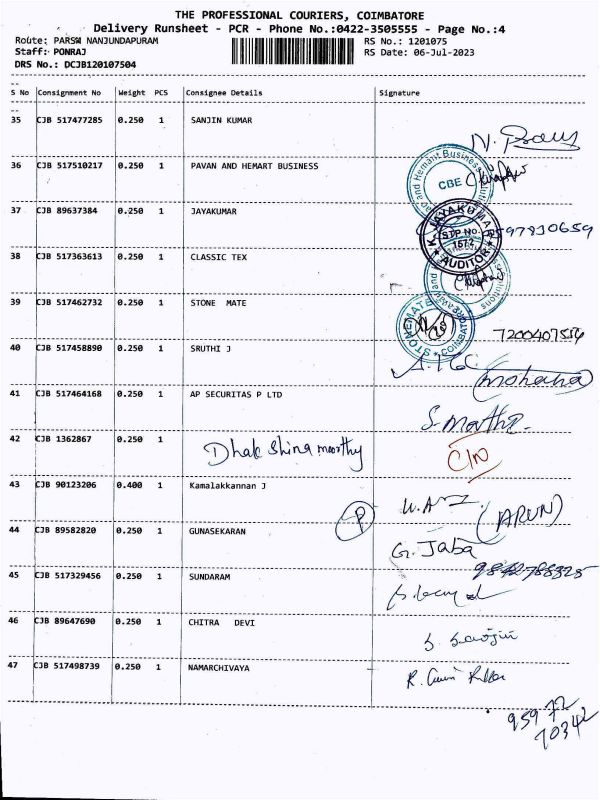 THE PROFESSIONAL COURIERS, COIMBATORE
Delivery Runsheet - PCR - Phone No.:0422-3505555 - Page No.:4
Route: PARSW NANJUNDAPURAM
RS No.: 1201075
Staff: PONRAJ
RS Date: 06-Jul-2023
DRS No.: DCJB120107504
S No Consignment No Weight PCS Consignee Details Signature
35 CJB 517477285 0.250 1 SANJIN KUMAR
36 CJB 517510217 0.250 1 PAVAN AND HEMART BUSINESS
CBE
37 CJB 89637384 0.250 1 JAYAKUMAR
K. JAYAKUMAR
STP No.
1572
AUDITOR
38 CJB 517363613 0.250 1 CLASSIC TEX
39 CJB 517462732 0.250 1 STONE MATE
7200407554
40 CJB 517458890 0.250 1 SRUTHI J
(mohana)
41 CJB 517464168 0.250 1 AP SECURITAS P LTD
42 CJB 1362867 0.250 1 Dhakshina moorthy
43 CJB 90123206 0.400 1 Kamalakkannan J
P
(ARUN)
44 CJB 89582820 0.250 1 GUNASEKARAN
G. Jaba
45 CJB 517329456 0.250 1 SUNDARAM
46 CJB 89647690 0.250 1 CHITRA DEVI
47 CJB 517498739 0.250 1 NAMARCHIVAYA
95972
70342